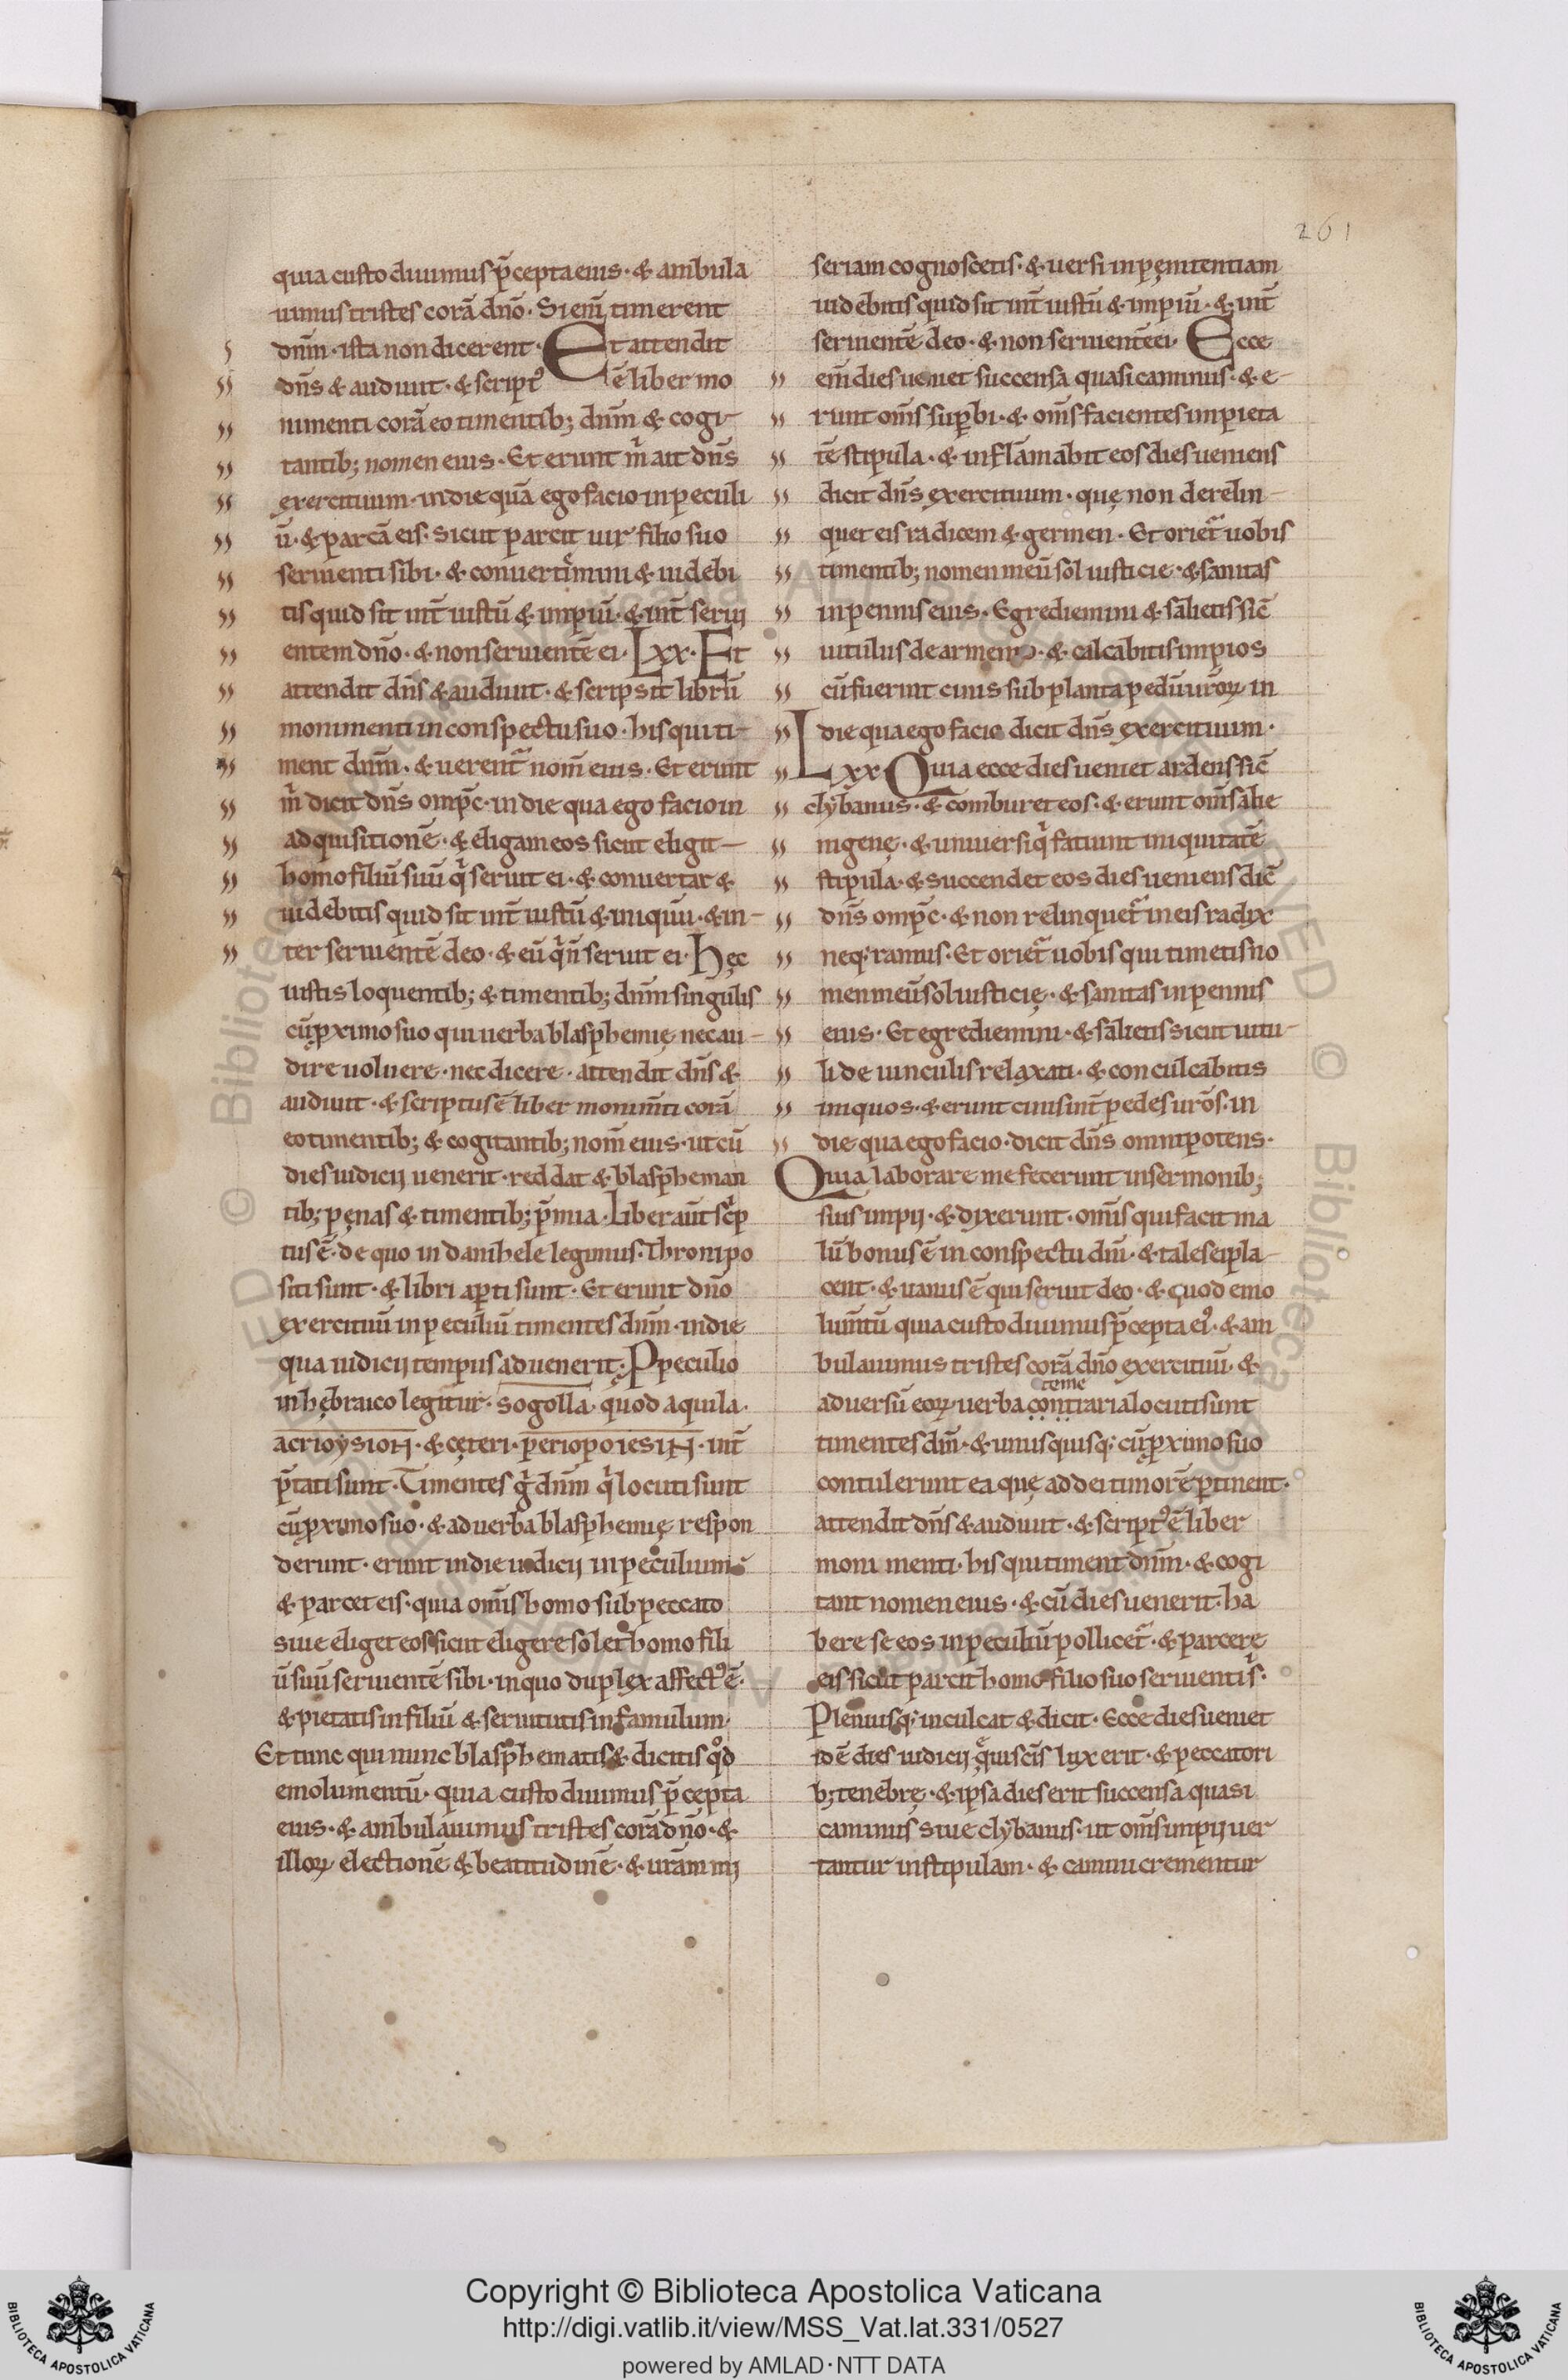 261
quia custodiuimus p̄cepta eius · & ambula
uimus tristes corā dn̄o · Si eni̅ timerent
dn̄m · ista non dicerent · Et attendit
dn̄s & audiuit · & scriptꝰ ē liber mo
numenti corā eo timentib; dn̄m & cogi-
tantib; nomen eius · Et erunt m̄ ait dn̄s
exercituum · in die quā ego facio in peculi
ū · & parcā eis · sicut parcit uir filio suo
seruienti sibi · & conuertimini & uidebi
tis quid sit int̄ iustū & impiū · & int̄ serui
entem dn̄o · & non seruientē ei · Lxx · Et
attendit dn̄s & audiuit · & scripsit librū
monimenti in conspectu suo · his qui ti-
ment dn̄m · & uerent̄ nom̄ eius · Et erunt
m̄ dicit dn̄s omp̄c · in die qua ego facio in
adquisitionē · & eligam eos sicut eligit-
homo filiū suū q̄ seruit ei · & conuertar &
uidebitis quid sit int̄ iustū & iniquū · & in-
ter seruientē deo · & eū q̄ n̄ seruit ei · Hęc
iustis loquentib; & timentib; dn̄m singulis
cū ꝓximo suo qui uerba blasphemię nec au-
dire uoluere · nec dicere · attendit dn̄s &
audiuit · & scriptus ē liber monim̄ti corā
eo timentib; & cogitantib; nom̄ eius · ut cū
dies iudicij uenerit · reddat & blaspheman
tib; pęnas & timentib; p̄mia · Liber aūt sc̄p
tus ē · de quo in danihele legimus · Throni po
siti sunt · & libri aꝑti sunt · Et erunt dn̄o
exercituū in peculiū timentes dn̄m · in die
qua iudicij tempus aduenerit · Ꝓ peculio
in hębraico legitur · sogolla · quod aquila ·
acrioysioN · & cęteri · periopoiesiN · int̄
p̄tati sunt · Timentes g̊ dn̄m q̄ locuti sunt
cū ꝓximo suo · & ad uerba blasphemię respon
derunt · erunt in die iudicij in peculium
& parcet eis · quia om̄is homo sub peccato
siue eliget eos sicut eligere solet homo fili
ū suū seruientē sibi · in quo duplex affectꝰ ē ·
& pietatis in filiū & seruitutis in famulum ·
Et tunc qui nunc blasphematis & dicitis qd̊
emolumentū · quia custodiuimus p̄cepta
eius · & ambulauimus tristes corā dn̄o · &
illoꝝ electionē & beatitudinē · & urām mi
seriam cognoscetis · & uersi in pęnitentiam
uidebitis quid sit int̄ iustū & impiū · & int̄
seruientē deo · & non seruientē ei · Ecce
eni̅ dies ueniet succensa quasi caminus · & e-
runt om̄s suꝑbi · & om̄s facientes impieta
tē stipula · & inflāmabit eos dies ueniens
dicit dn̄s exercituum · quę non derelin-
quet eis radicem & germen · Et oriet̄ uobis
timentib; nomen meū sol iusticie · & sanitas
in pennis eius · Egrediemini & salietis sic̄
uitulus de armento · & calcabitis impios
cū fuerint cinis sub planta pedū ur̄oꝝ in
die qua ego facio dicit dn̄s exercituum ·
Lxx Quia ecce dies ueniet ardens sic̄
clybanus · & comburet eos · & erunt om̄s alie
nigenę · & uniuersi q̄ faciunt iniquitatē
stipula · & succendet eos dies ueniens dic̄
dn̄s omp̄c · & non relinquet̄ in eis radix
neq; ramus · Et oriet̄ uobis qui timetis no
men meū sol iusticię · & sanitas in pennis
eius · Et egrediemini · & salietis sicut uitu-
li de uinculis relaxati · & conculcabitis
iniquos · & erunt cinis int̄ pedes ur̄os · in
die qua ego facio · dicit dn̄s omnipotens ·
Quia laborare me fecerunt in sermonib;
suis impij · & dixerunt · om̄is qui facit ma
lū bonus ē in conspectu dn̄i · & tales ei pla-
cent · & uanus ē qui seruit deo · & quod emo
lum̄tū quia custodiuimus p̄cepta eiꝰ · & am
bulauimus tristes corā dn̄o exercituū · &
teme
aduersū eoꝝ uerba contraria locuti sunt
timentes dn̄m · & unusquisq; cū ꝓximo suo
contulerunt ea quę ad dei timorē ꝑtinent ·
attendit dn̄s & audiuit · & scriptꝰ ē liber
monimenti · his qui timent dn̄m · & cogi
tant nomen eius · & cū dies uenerit · ha
bere se eos in peculiū pollicet̄ · & parcere
eis sicut parcit homo filio suo seruienti s̄ ·
Pleniusq; inculcat & dicit · Ecce dies ueniet
id ē dies iudicij q̄ iusc̄is lux erit · & peccatori
b; tenebrę · & ipsa dies erit succensa quasi
caminus siue clybanus · ut om̄s impij uer
tantur in stipulam · & camini crementur
Copyright © Biblioteca Apostolica Vaticana
http://digi.vatlib.it/view/MSS_Vat.lat.331/0527
powered by AMLAD·NTT DATA
BIBLIOTECA APOSTOLICA VATICANA
BIBLIOTECA APOSTOLICA VATICANA